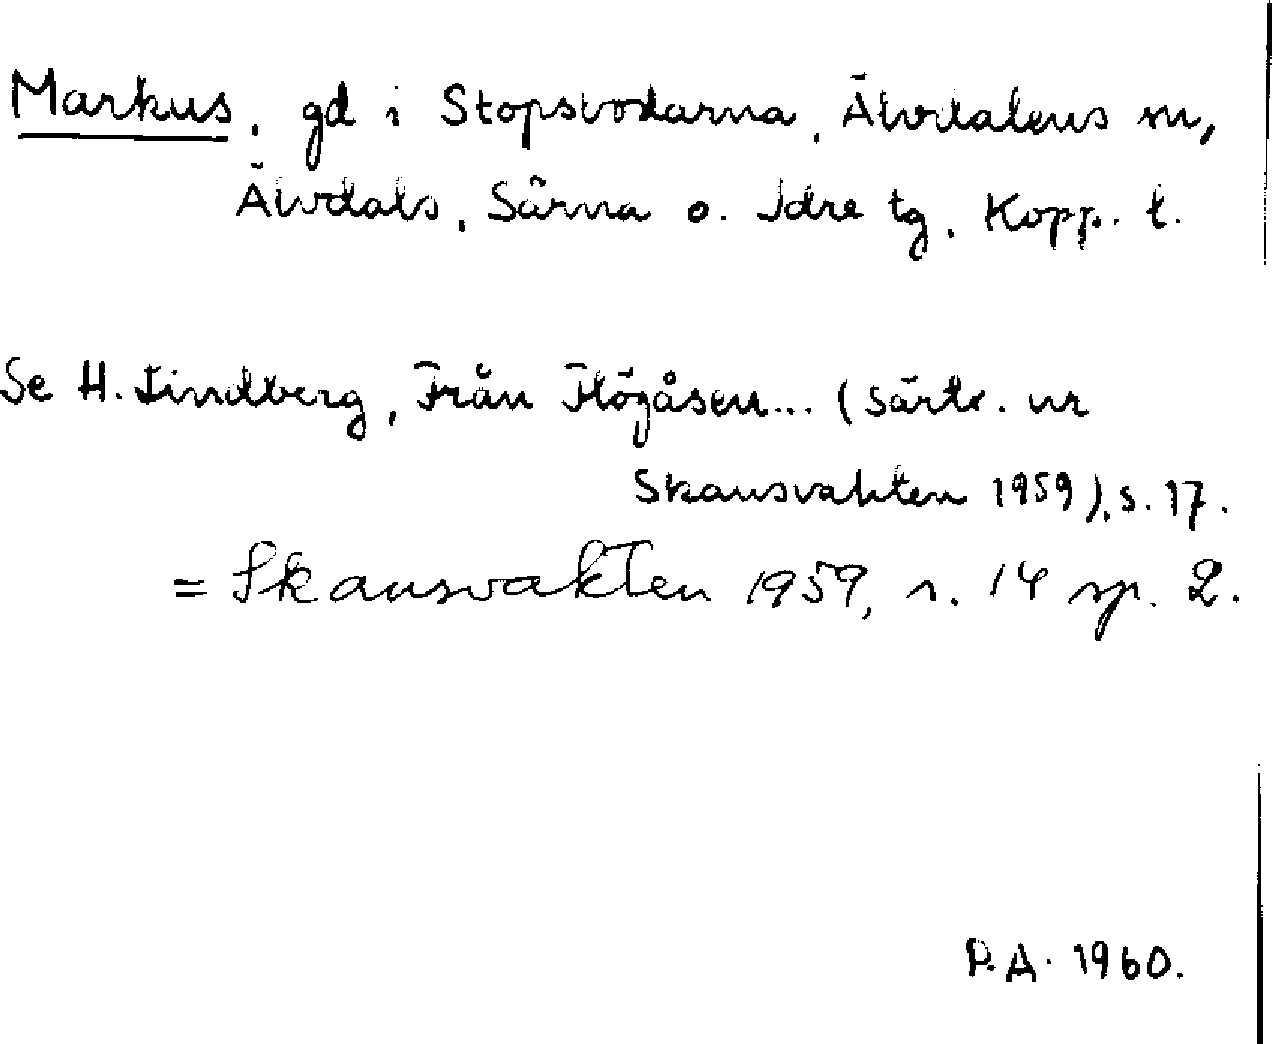 Markus, gd i Stopsbodarna, Älvdalens sn,
Älvdals, Särna o. Idre tg, Kopp. l.
Se H. Lindberg, Från Högåsen... (Särtr. ur
Skansvakten 1959), s. 17.
= Skansvakten 1959, s. 14 sp. 2.
P.A. 1960.